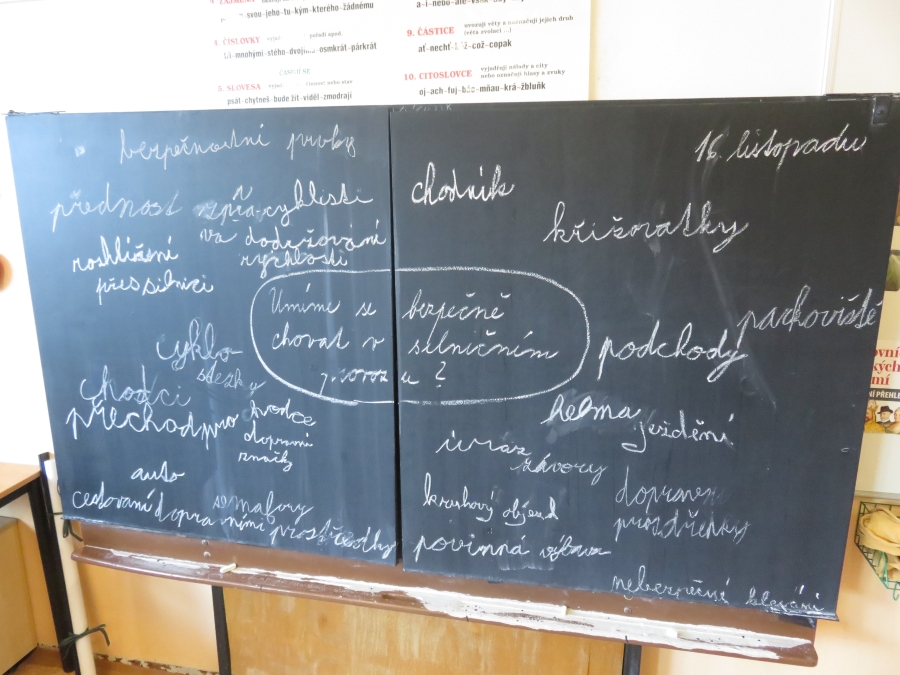 svou-jeho-tu-kým-kterého-žádnému
4. ČÍSLOVKY
mnohými-stého-dvojmo-osmkrát-párkrát
5. SLOVESA
psát-chytneš-bude žít-viděl-zmodrají
a-i-nebo-ale
9. ČÁSTICE
uvozují věty a naznačují jejich druh
ať-nechť
což-copak
10. CITOSLOVCE
vyjadřují nálady a city
nebo označují hlasy a zvuky
oj-ach-fuj-bác-mňau-krá-žbluňk
bezpečnostní prvky
přednost zprava
cyklisti
dodržování
rychlosti
rozhlížení
přes silnici
cyklo-
stezky
chodci
přechod pro
dopravní
značky
auto
semafory
cestování dopravními prostředky
Umíme se bezpečně
chovat v silničním
provozu ?
16. listopadu
chodník
křižovatky
parkoviště
podchody
helma
ježdění
úraz
závory
kruhový objezd
povinná výbava
nebezpečné